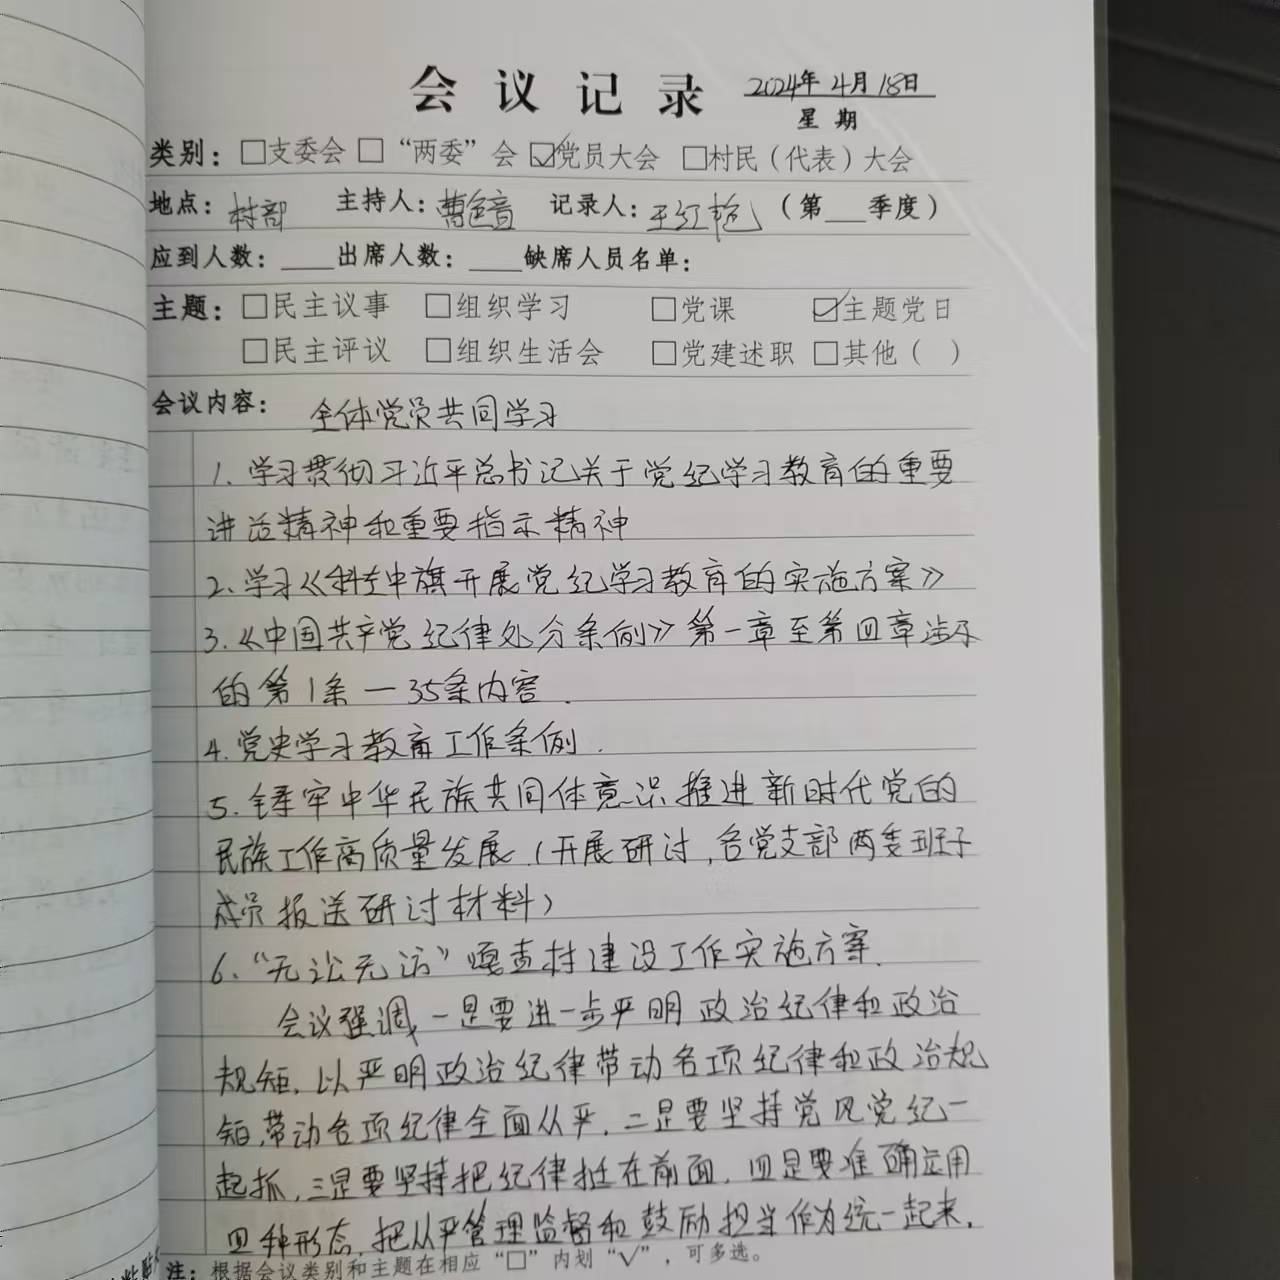 会议记录 2024年4月18日
星期
类别：□支委会 □“两委”会 ☑党员大会 □村民（代表）大会
地点：村部 主持人：曹色音 记录人：王红艳（第___季度）
应到人数：____出席人数：____缺席人员名单：
主题：□民主议事 □组织学习 □党课 ☑主题党日
□民主评议 □组织生活会 □党建述职 □其他（ ）
会议内容： 全体党员共同学习
1. 学习贯彻习近平总书记关于党纪学习教育的重要
讲话精神和重要指示精神
2. 学习《科左中旗开展党纪学习教育的实施方案》
3.《中国共产党纪律处分条例》第一章至第四章涉及
的第1条—35条内容.
4. 党史学习教育工作条例.
5. 铸牢中华民族共同体意识推进新时代党的
民族工作高质量发展.（开展研讨,各党支部两委班子
成员报送研讨材料）
6. “无讼无访”嘎查村建设工作实施方案.
会议强调,一是要进一步严明政治纪律和政治
规矩,以严明政治纪律带动各项纪律和政治规
矩,带动各项纪律全面从严.二是要坚持党风党纪一
起抓,三是要坚持把纪律挺在前面.四是要准确运用
四种形态,把从严管理监督和鼓励担当作为统一起来.
注：根据会议类别和主题在相应“□”内划“√”，可多选。